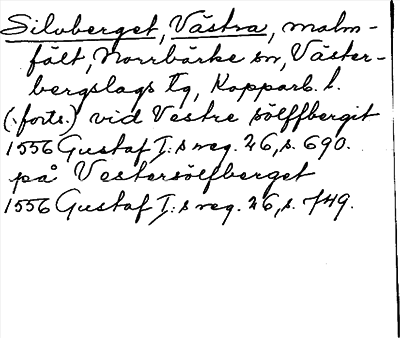 Silvberget, Västra, malm-
fält, Norrbärke sn, Väster-
bergslags tg, Kopparb. l.
(forts.) vid Vestre sölffbergit
1556 Gustaf I:s reg. 26, s. 690.
på Vestersölfberget
1556 Gustaf I:s reg. 26, s. 749.